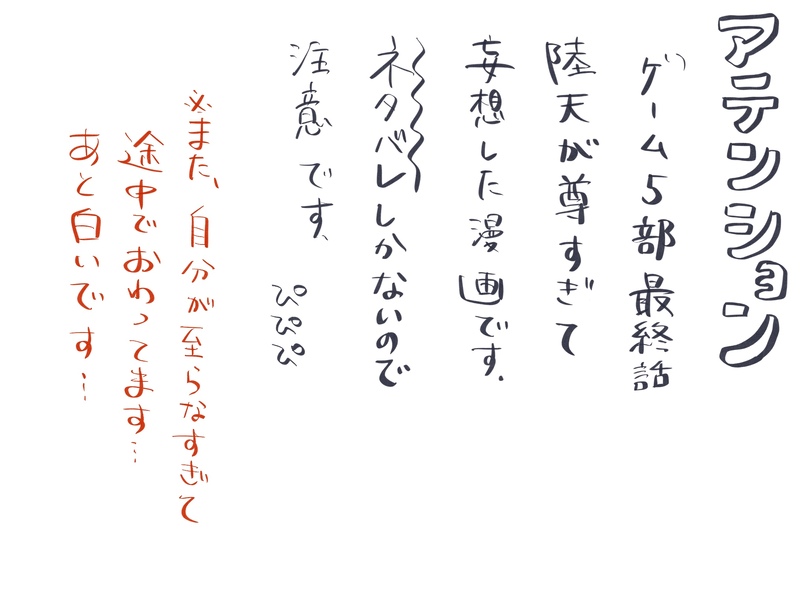 アテンション
ゲーム5部最終話
陸天が尊すぎて
妄想した漫画です.
ネタバレしかないので
注意です、
ぴぴぴ
※また、自分が至らなすぎて
途中でおわってます…
あと白いです…